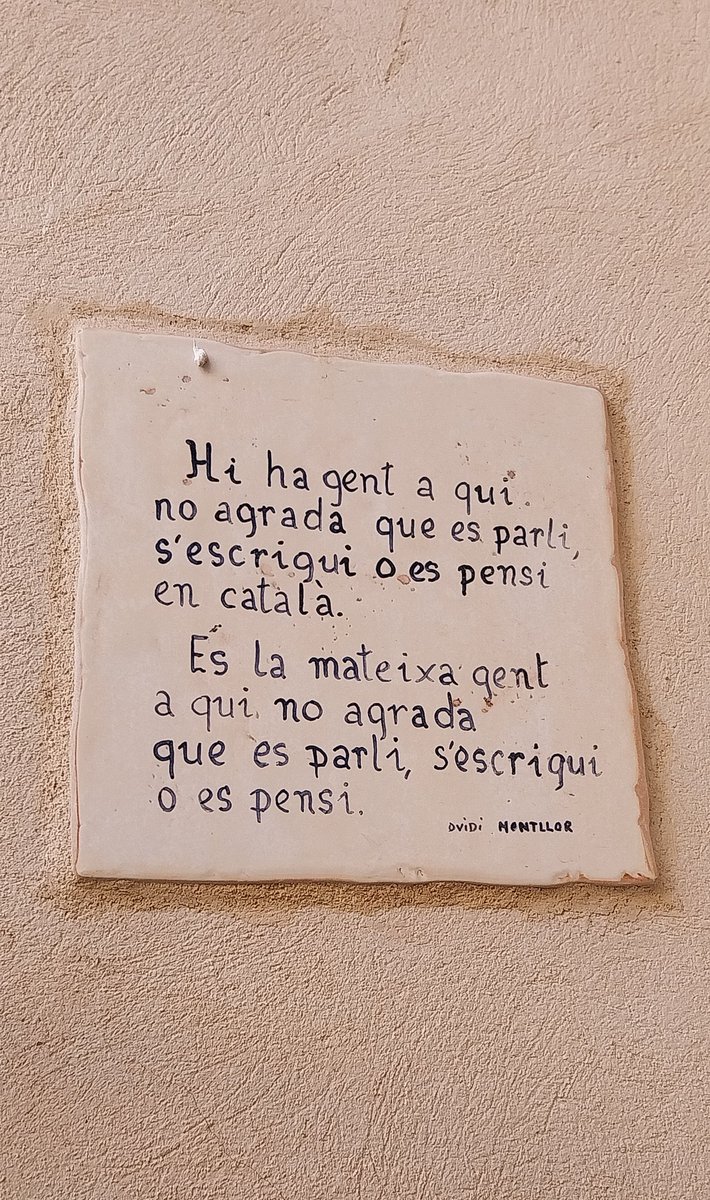 Hi ha gent a qui
no agrada que es parli,
s'escrigui o es pensi
en català.
És la mateixa gent
a qui no agrada
que es parli, s'escrigui
o es pensi.
OVIDI MONTLLOR